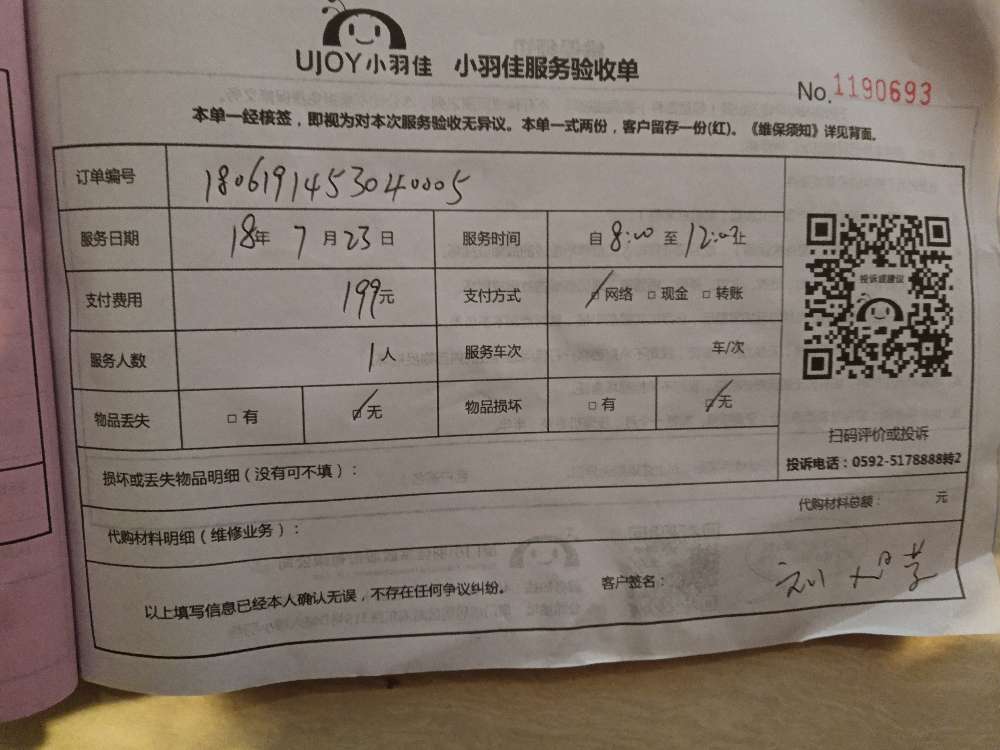 UJOY小羽佳 小羽佳服务验收单
No. 1190693
本单一经核签，即视为对本次服务验收无异议。本单一式两份，客户留存一份(红)。《维保须知》详见背面。
订单编号 1806191453040005
服务日期 18年 7月23日 服务时间 自 8:00 至 12:00止
支付费用 199元 支付方式 ☑网络 □现金 □转账
服务人数 1人 服务车次 车/次
物品丢失 □有 ☑无 物品损坏 □有 ☑无
投诉或建议
扫码评价或投诉
投诉电话：0592-5178888转2
损坏或丢失物品明细（没有可不填）：
代购材料明细（维修业务）： 代购材料总额： 元
以上填写信息已经本人确认无误，不存在任何争议纠纷。 客户签名：